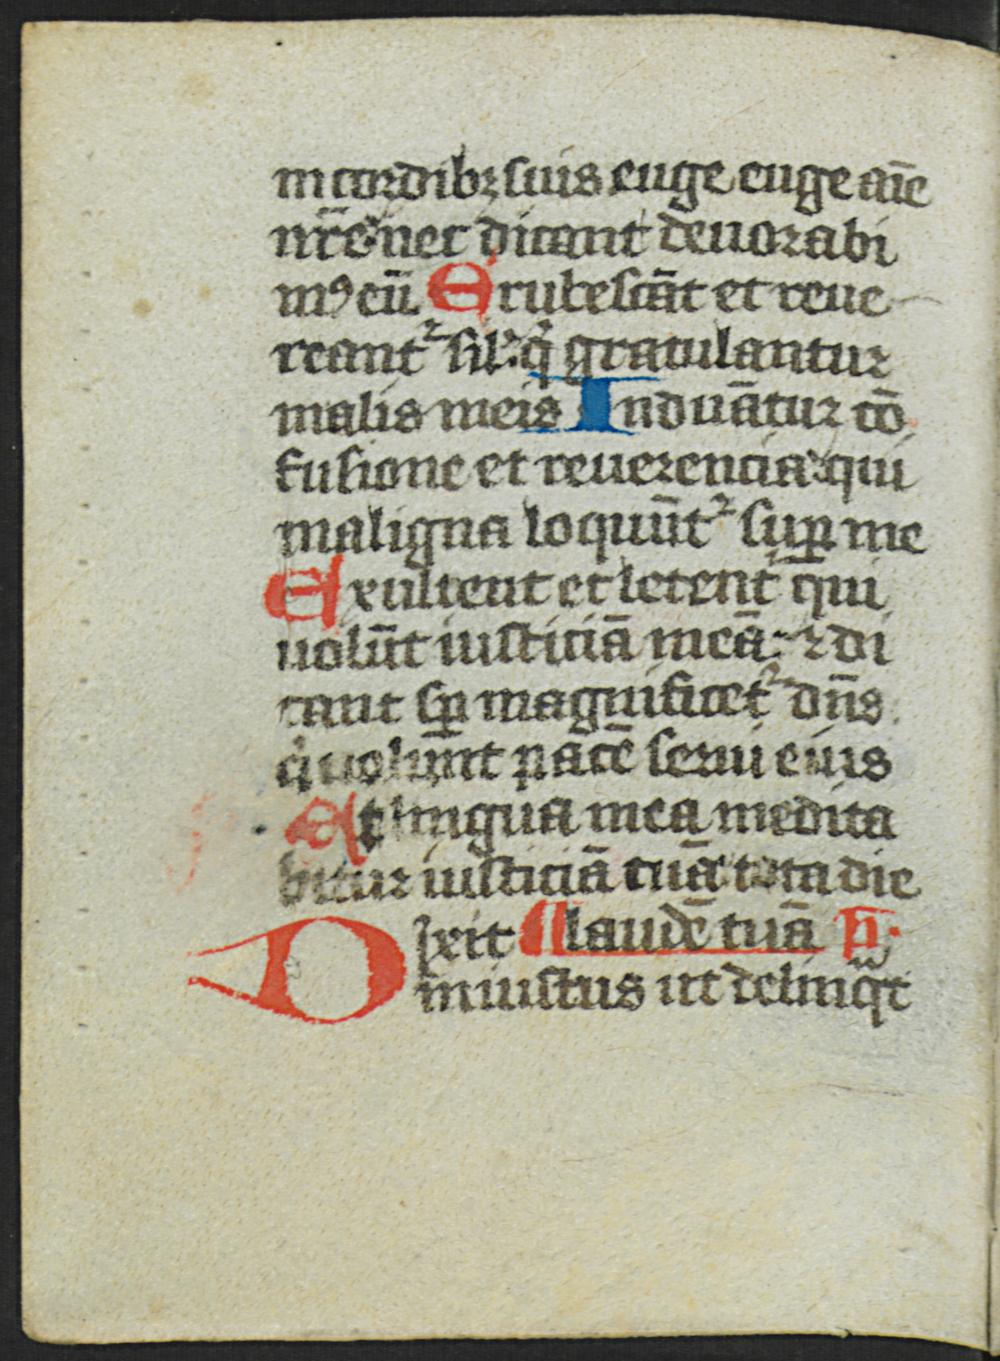 in cordibꝫ suis euge euge aīe
nr̄e nec dicant deuorabi
mꝰ eū Erubescāt et reue
reantᷣ sil̛ q̇ gratulantur
malis meis Induātur cō
fusione et reuerencia qui
maligna loquūtᷣ suꝑ me
Exultent et letent̄ qui
uolūt iusticiā meā ⁊ di
cant sꝑ magnificetᷣ dn̄s
q̇ uolunt pacē serui eius
Et lingua mea medita
bitur iusticiā tuā tota die
Dixit ¶ laudē tuā p̄s
iniustus ut delinq̄t